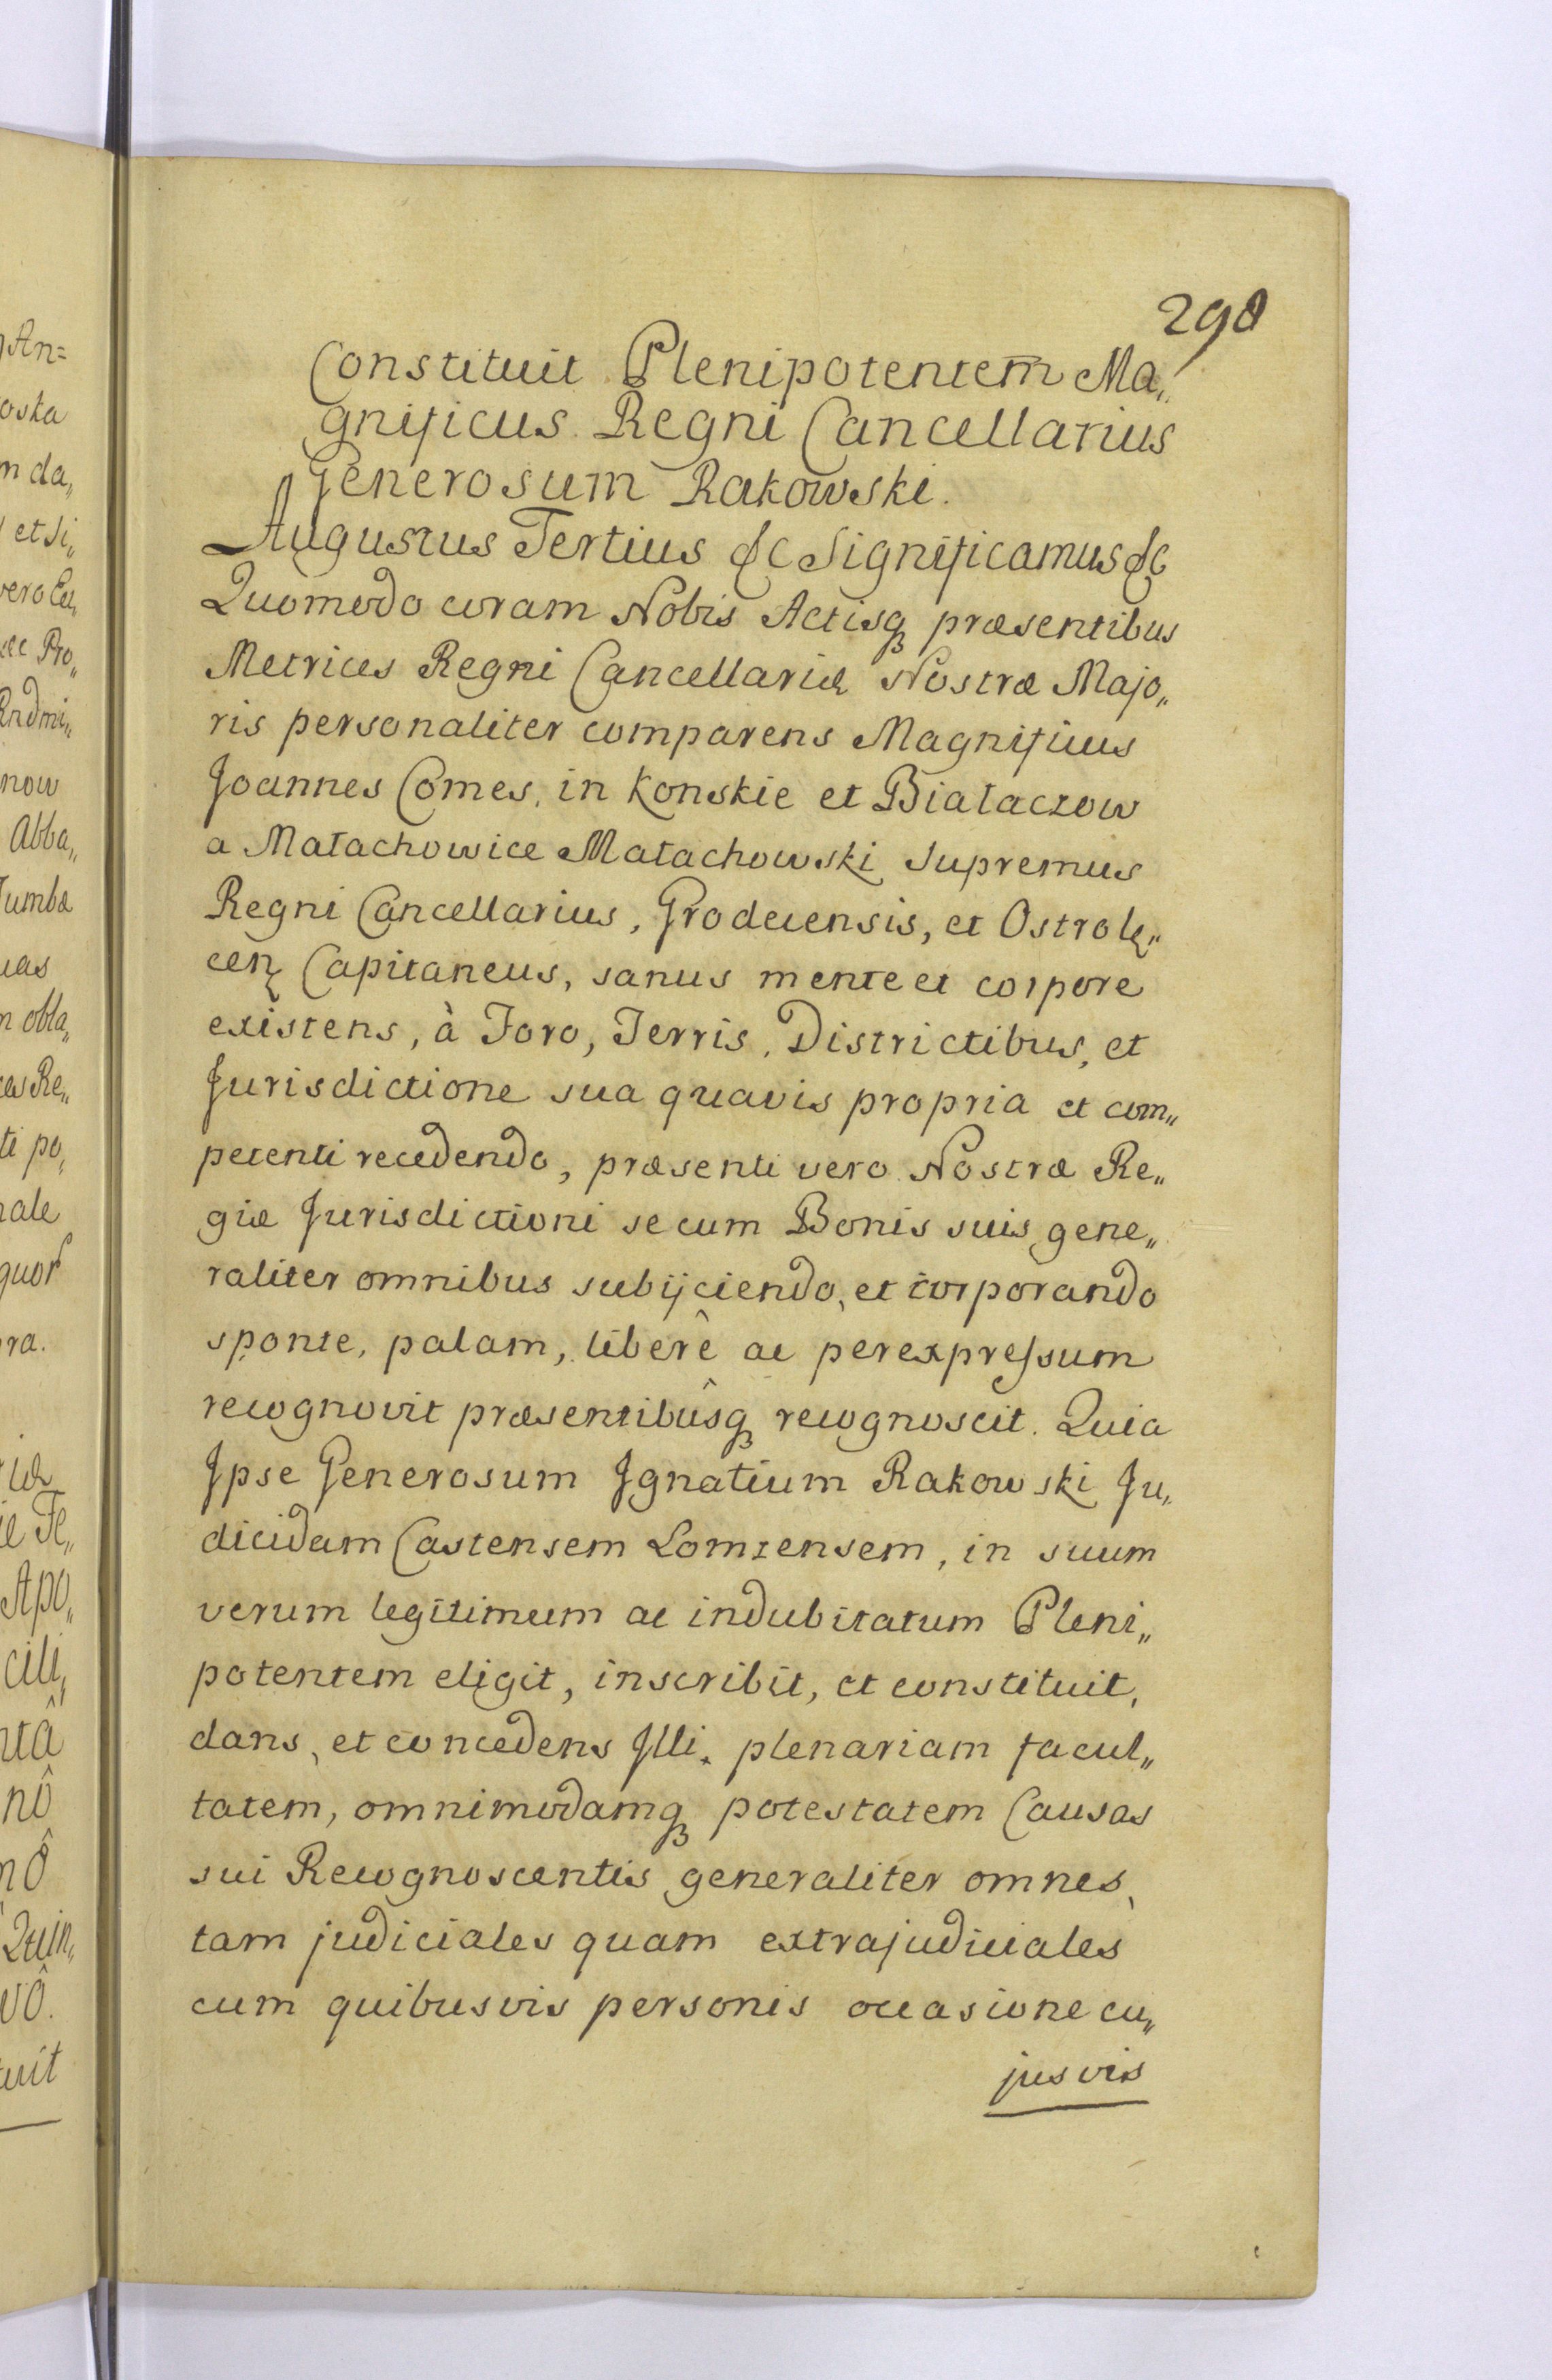 298
Constituit Plenipotentem Ma„
gnificus Regni Cancellarius
Generosum Rakowski.
Augustus Tertius &c Significamus &c
Quomodo coram Nobis Actisq præsentibus
Metrices Regni Cancellariæ Nostræ Majo„
ris personaliter comparens Magnificus
Joannes Comes, in Konskie et Białaczow
a Małachowice Małachowski Supremus
Regni Cancellarius, Grodecensis, et Ostrołę„
cen Capitaneus, sanus mente et corpore
existens, à Foro, Terris, Districtibus, et
Jurisdictione sua quavis propria et com„
petenti recedendo, præsenti vero Nostræ Re„
giæ Jurisdictioni se cum Bonis suis gene„
raliter omnibus subijciendo, et corporando
sponte, palam, liberê ac per expressum
recognovit præsentibûsq recognoscit. Quia
Ipse Generosum Ignatium Rakowski Ju„
dicidam Castensem Lomzensem, in suum
verum legitimum ac indubitatum Pleni„
potentem eligit, inscribit, et constituit,
dans, et concedens Illi, plenariam facul„
tatem, omnimodamq potestatem Causas
sui Recognoscentis generaliter omnes,
tam judiciales quam extrajudiciales
cum quibusvis personis occasione cu„
jusvis
An=
oska
n da„
et Si„
vero Eu„
Pro„
now
Abba„
Tumbæ
uas
n obla„
Re„
ti po„
nale
quor
ra.
Apo„
cili„
ntâ
nô
nô
Quin„
vô.
tuit